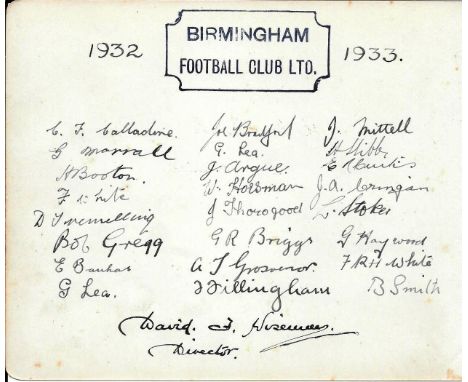 BIRMINGHAM
1932 1933.
FOOTBALL CLUB LTD.
C. F. Calladine.
G Morrall
H Booton.
F White
D Tremelling
Bob Gregg
E Barkas
G Lea.
Joe Bradford
G. Lea.
J. Argue.
W. Horsman
J Thorogood
G R Briggs
A T Grosvenor.
T Fillingham
J. Mittell
H Hibbs
E Curtis
J. A. Cringan
L. Stoker
G Haywood
F R H White
B Smith
David F.
Director.